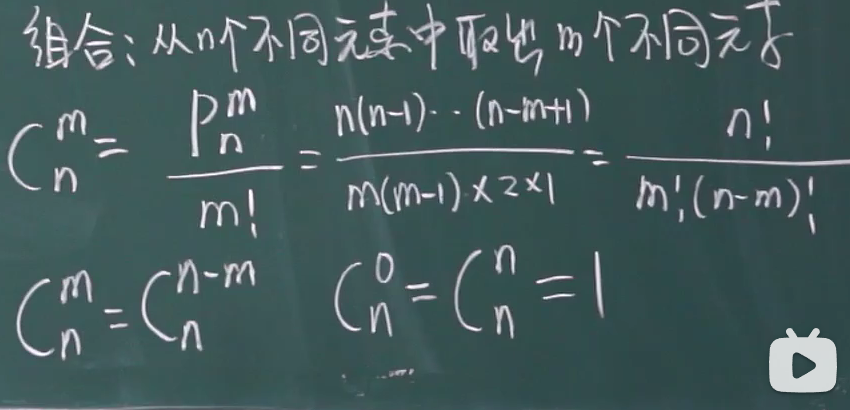 组合:从n个不同元素中取出m个不同元素
C_n^m = P_n^m / m! = n(n-1)··(n-m+1) / m(m-1)·×2×1 = n! / m!(n-m)!
C_n^m = C_n^{n-m}  C_n^0 = C_n^n = 1